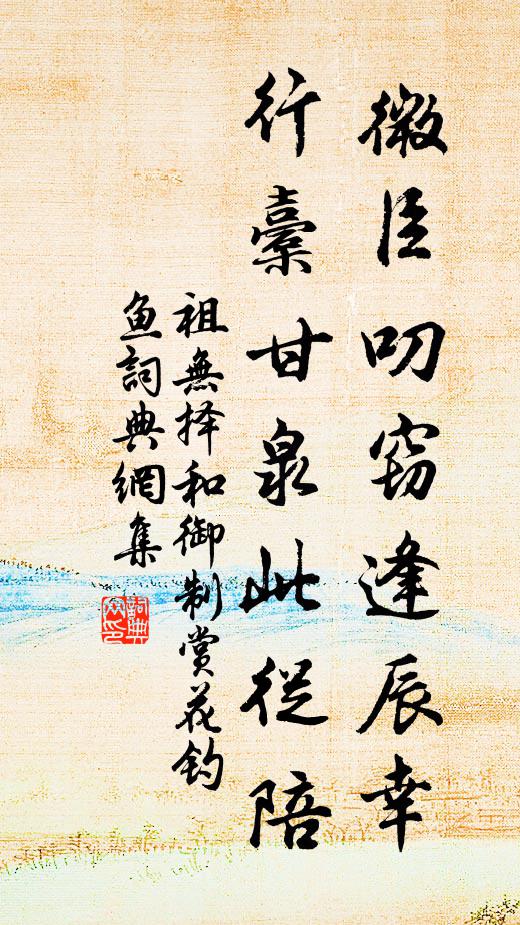 微臣叨窃逢辰幸
行橐甘泉此從陪
祖無择和御制賞花钓
魚詞典網集
詞典